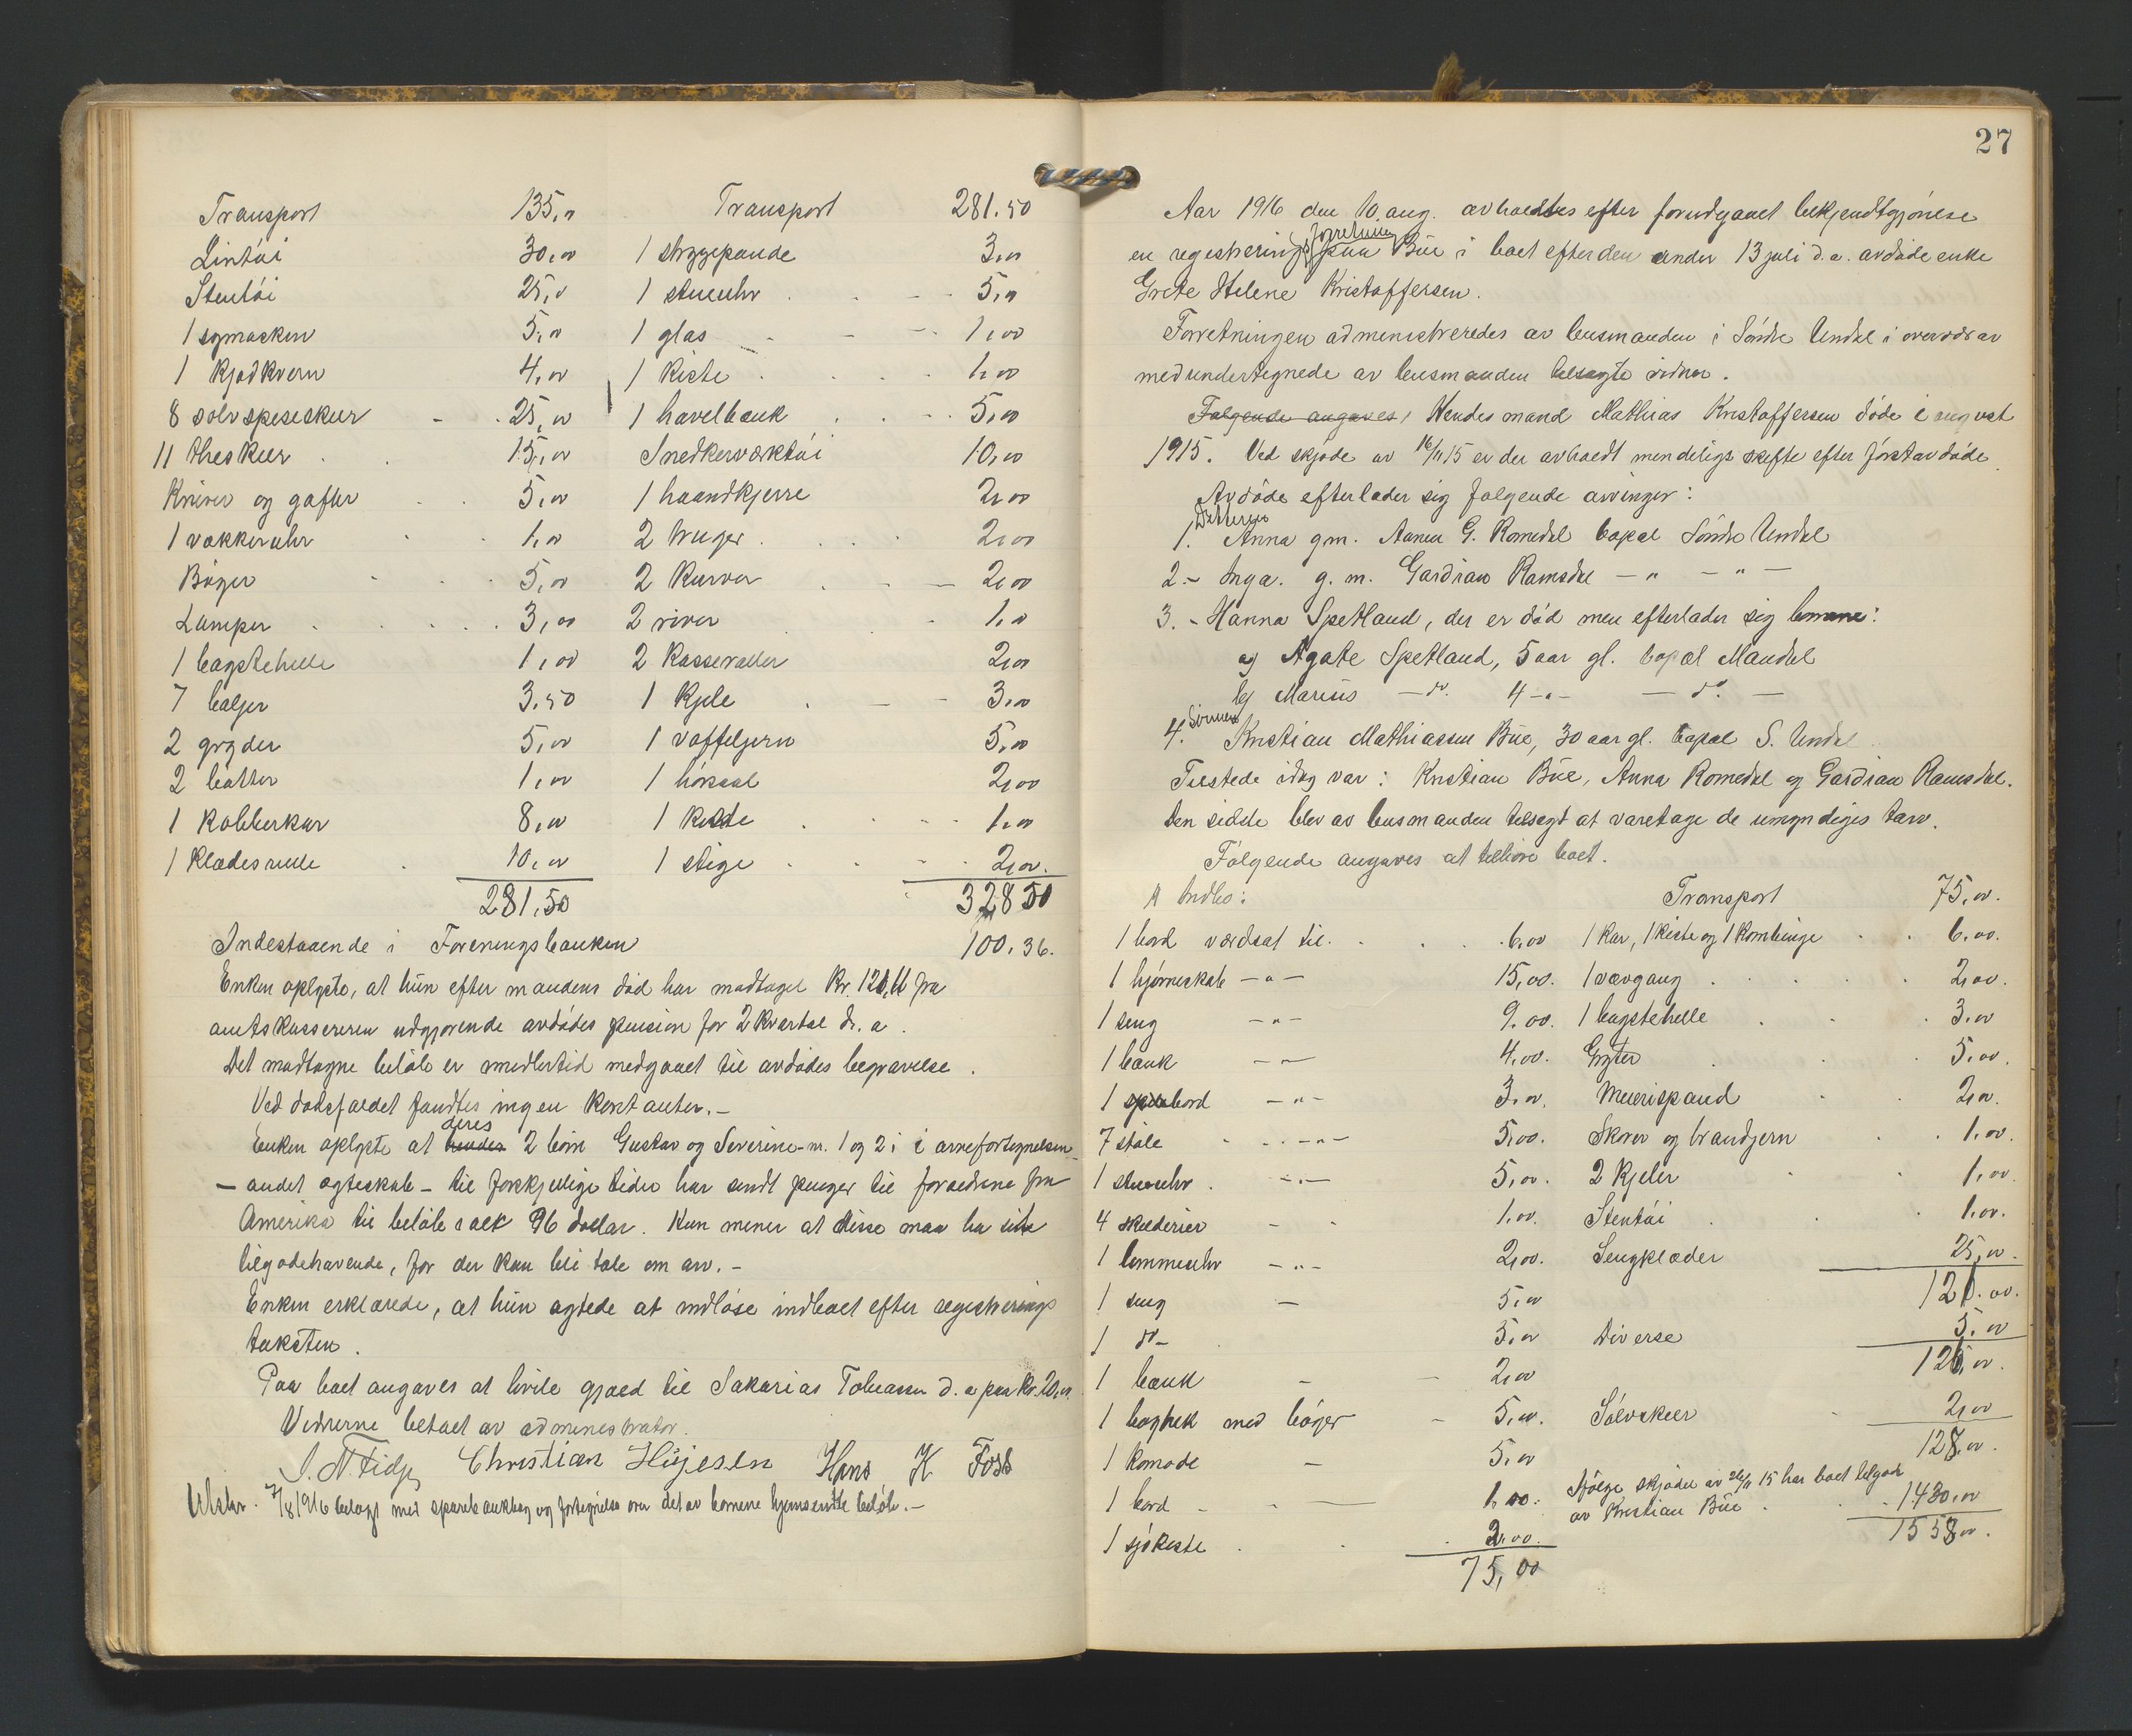 Transport 135,00 Transport 281.50
Lintöi 30,00 1 strygepande 3,00
Stentöi 25,00 1 stueuhr 5,00
1 symaskin 5,00 1 glas 1,00
1 kjødkvern 4,00 1 kiste 1,00
8 sølvspiseskeer 25,00 1 høvelbænk 5,00
11 theskeer 15,00 Snedkerværktöi 10,00
Kniver og gafler 5,00 1 haandkjerre 2,00
1 vækkeruhr 1,00 2 truger 2,00
Bøger 5,00 2 kurver 2,00
Lamper 3,00 2 river 1,00
1 bagstehelle 1,00 2 kasseroller 2,00
7 baljer 3,50 1 kjele 3,00
2 gryder 5,00 1 vaffeljern 5,00
2 bøtter 1,00 1 2,00
1 kobberkar 8,00 1 kiste 1,00
1 klædesrulle 10,00 1 stige 2,00.
281,50 328 50
Indestaaende i Foreningsbanken 100,36.
Enken oplyste, at hun efter mandens død har modtaget Kr. 121,11 fra
amtskassereren udgjørende avdødes pension for 2 kvartal d. a.
Det modtagne beløb er imidlertid medgaaet til avdødes begravelse.
Ved dødsfaldet fandtes ingen kontanter.-
Enken oplyste at hendes deres 2 børn Gustav og Severine - nr. 1 og 2 i arvefortegnelsen
- andet ægteskab - til forskjellige tider har sendt penger til forældrene fra
Amerika til beløb ialt 96 dollar. Hun mener at disse maa ha sit
tilgodehavende, før der kan bli tale om arv.-
Enken erklærede, at hun agtede at indløse indboet efter registrerings
taksten.
Paa boet angaves at hvile gjæld til Sakarias Tobiassen d. a. paa Kr. 20,00.
Vidnerne betalt av administrator.
Christian Hüjesen Hans K Foss
Utskr. 7/8 1916 belagt med sparebankbog og fortegnelse over det av børnene hjemsendte beløb.-
27
Aar 1916 den 10. aug. avholdtes efter forudgaaet bekjendtgjørelse
en registrerings forretning paa Büe i boet efter den under 13 juli d. a. avdøde enke
Grete Helene Kristoffersen.
Forretningen administreredes av lensmanden i Söndre Undal i overvær av
medundertegnede av lensmanden tilsagte vidner.
Følgende angaves, Hendes mand Mathias Kristoffersen døde i august
1915. Ved skjøde av 16/11 15 er der avholdt mindelig skifte efter förstavdøde
Avdøde efterlader sig følgende arvinger:
1. Datteren Anna gm. Aanen G. Romedal bopæl Söndre Undal
2.- Inga. g. m. Gardian Ramsdal - " - " -
3. - Hanna Spetland, der er död men efterlader sig børnene:
a) Agate Spetland, 5 aar gl. bopæl Mandal
b) Marius - do. 4 - " - - do. -
4. Sönnen Kristian Mathiassen Büe, 30 aar gl. bopæl S. Undal
Tilstede idag var: Kristian Büe, Anna Romedal og Gardian Ramsdal.
Den sidste blev av lensmanden tilsagt at varetage de umyndiges tarv.
Følgende angaves at tilhöre boet.
A Indbo: Transport 75,00.
1 bord værdsat til 6,00 1 kar, 1 kiste og 1 kornbinge 6,00.
1 hjørneskab - " - 15,00. 1 vævgang 2,00.
1 seng - " - 9,00. 1 bagstehelle 3,00
1 bænk - " - 4,00. Gryter 5,00.
1 bord - " - 3,00. Meierispand 2,00.
7 stole - " - 5,00. Skorer og brandjern 1,00.
1 stueuhr - " - 5,00. 2 kjeler 1,00.
4 skilderier - 1,00. Stentöi 1,00.
1 lommeuhr - " - 2,00. Sengklæder 25,00.
1 seng - 5,00 121.00.
1 do - 5,00 Diverse 5,00
1 bænk - 2,00 126,00.
1 boghek med bøger - 5,00. Sölvskeer 2,00
1 komode - 5,00 128,00.
1 bord - 1,00. Ifølge skjöde av 26/11 15 har boet tilgode
av Kristian Büe 1430,00
1 sjøkiste 2,00. 1558,00.
75,00